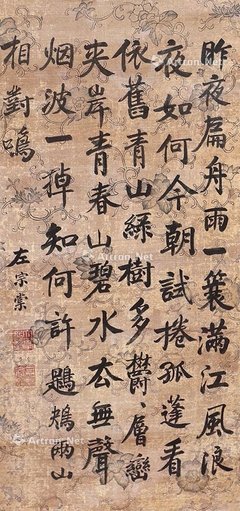 昨夜扁舟雨一蓑滿江風浪
夜如何今朝試捲孤蓬看
依舊青山綠樹多鬱鬱層巒
夾岸青春山碧水去無聲
烟波一棹知何許鶗鴂兩山
相對鳴
左宗棠
Artron.Net
Artron.Net
Artron.Net
Artron.Net